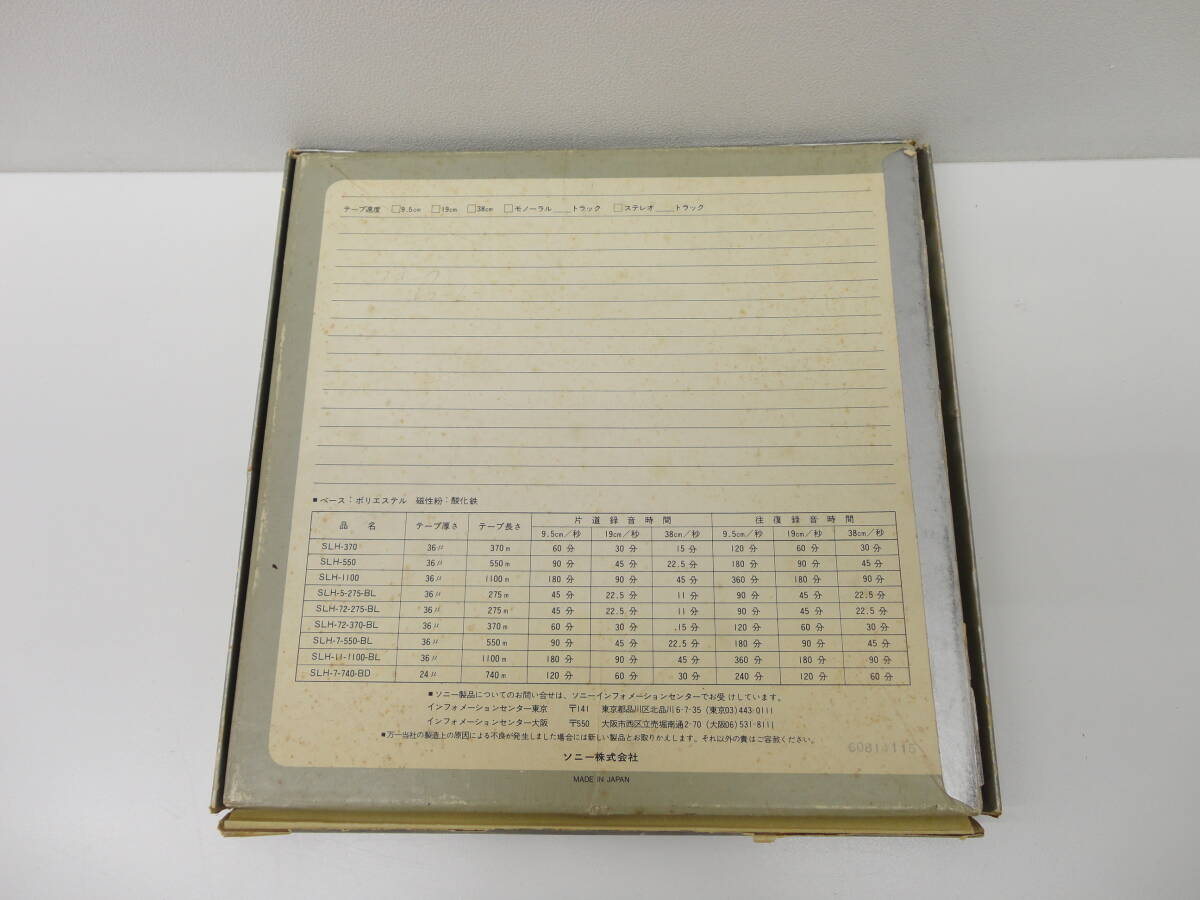 テープ速度 □9.5cm □19cm □38cm □モノーラル___トラック □ステレオ___トラック
■ベース：ポリエステル 磁性粉：酸化鉄
品名 テープ厚さ テープ長さ 片道録音時間 往復録音時間
9.5cm/秒 19cm/秒 38cm/秒 9.5cm/秒 19cm/秒 38cm/秒
SLH-370 36μ 370m 60分 30分 15分 120分 60分 30分
SLH-550 36μ 550m 90分 45分 22.5分 180分 90分 45分
SLH-1100 36μ 1100m 180分 90分 45分 360分 180分 90分
SLH-5-275-BL 36μ 275m 45分 22.5分 11分 90分 45分 22.5分
SLH-72-275-BL 36μ 275m 45分 22.5分 11分 90分 45分 22.5分
SLH-72-370-BL 36μ 370m 60分 30分 15分 120分 60分 30分
SLH-7-550-BL 36μ 550m 90分 45分 22.5分 180分 90分 45分
SLH-11-1100-BL 36μ 1100m 180分 90分 45分 360分 180分 90分
SLH-7-740-BD 24μ 740m 120分 60分 30分 240分 120分 60分
■ソニー製品についてのお問い合せは、ソニーインフォメーションセンターでお受けしています。
インフォメーションセンター東京 〒141 東京都品川区北品川6-7-35(東京03)443-0111
インフォメーションセンター大阪 〒550 大阪市西区立売堀南通2-70(大阪06)531-8111
■万一当社の製造上の原因による不良が発生しました場合には新しい製品とお取りかえします。それ以外の責はご容赦ください。
ソニー株式会社
MADE IN JAPAN